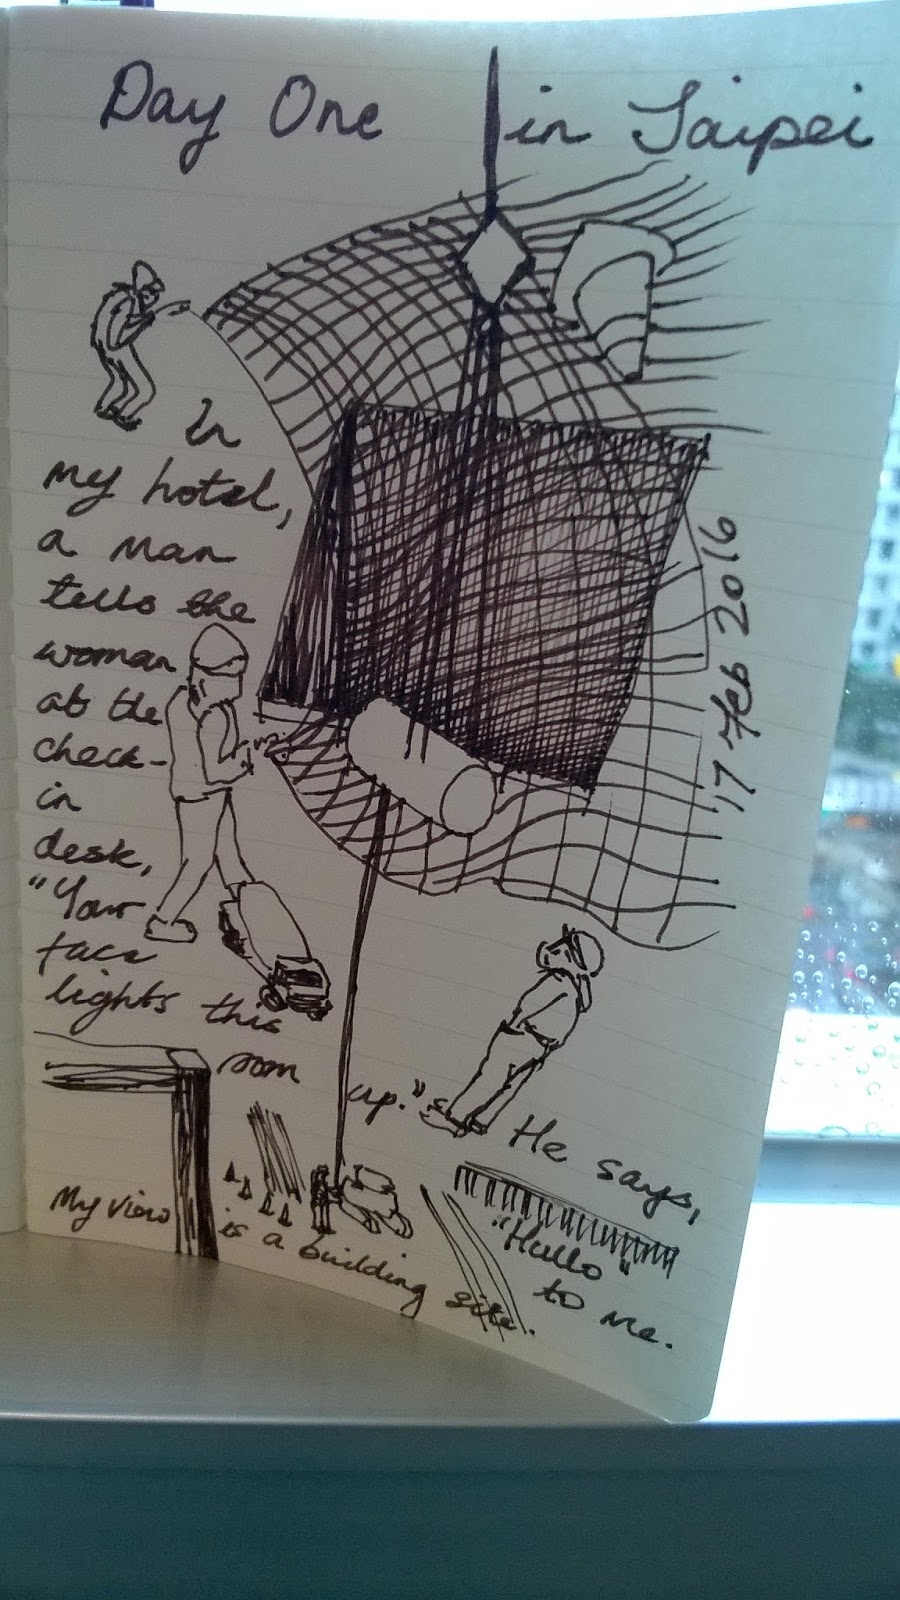 Day One in Taipei
In
my hotel,
a man
tells the
woman
at the
check-
in
desk,
"Your
face
lights this
room
up."
He says,
"Hullo"
to me.
My view
is a building site.
17 Feb 2016